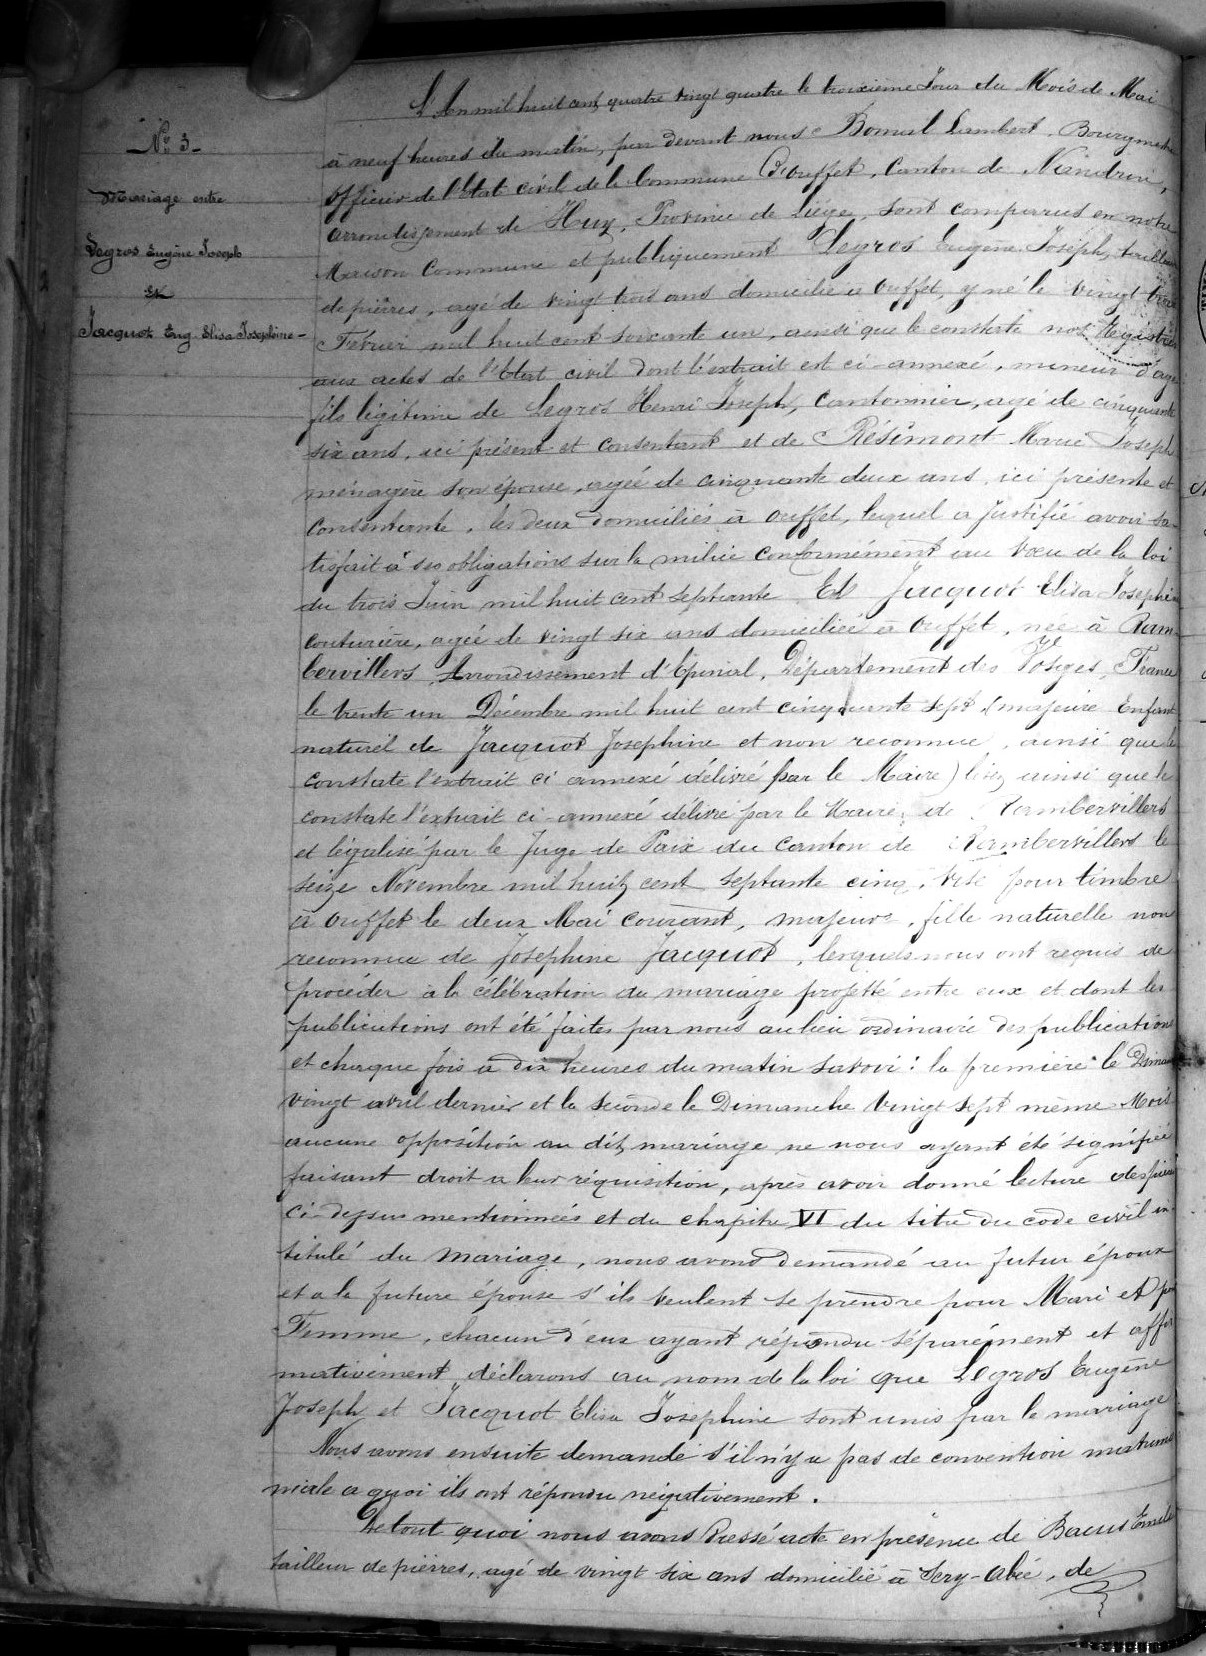 N° 3 -
Mariage entre
Legros Eugène Joseph
Et
Jacquot Eug. Elisa Josephine -
L'An mil huit cent quatre vingt quatre le troixième Jour du Mois de Mai
à neuf heures du matin, par devant nous Lambert, Bourgmestre
officier de l'Etat civil de la Commune D'ouffet, Canton de Nandrin,
arrondissement de Huy, Province de Liége, sont comparus en notre
Maison Commune et publiquement Legros Eugène Joseph, tailleur
de pièrres, agé de vingt trois ans domicilié à ouffet, y né le vingt trois
Février mil huit cent soixante un, ainsi que le constate nos Registres
aux actes de l'Etat civil dont l'extrait est ci-annexé, mineur d'age
fils légitime de Legros Henri Joseph, Cantonnier, agé de cinquante
six ans, ici présent et consentant et de Résimont Marie Joseph
ménagère son épouse, agée de cinquante deux ans, ici présente et
consentante, les deux domiciliés à ouffet, lequel a justifié avoir sa-
tisfait à ses obligations sur la milice conformément au vœu de la loi
du trois Juin mil huit cent septante Et Jacquot Elisa Josephine
couturière, agée de vingt six ans domiciliée à ouffet, née à Ram
bervillers Arrondissement d'Epinal, Département des Vosges, France
le trente un Décembre mil huit cent cinquante sept (majeure Enfant
naturel de Jacquot Josephine et non reconnue, ainsi que le
constate l'extrait ci annexé délivré par le Maire) lisez ainsi que le
constate l'extrait ci-annexé délivré par le Maire, de Rambervillers
et légalisé par le Juge de Paix du canton de Rambervillers le
seize Novembre mil huit cent septante cinq, visé pour timbre
à ouffet le deux Mai courant, majeure, fille naturelle non
reconnue de Josephine Jacquot, lesquels nous ont requis de
procéder à la célébration du mariage projetté entre eux et dont les
publications ont été faites par nous au lieu ordinaire des publications
et chaque fois à dix heures du matin savoir: la première le Diman
vingt avril dernier et la seconde le Dimanche vingt sept même Mois
aucune opposition au dit mariage ne nous ayant été signifiée
faisant droit à leur réquisition, après avoir donné lecture des pièces
ci-dessus mentionnées et du chapitre VI du titre du code civil in-
titulé du mariage, nous avons demandé au futur époux
et a la future épouse s'ils veulent se prendre pour Mari et pour
Femme, chacun d'eux ayant répondu séparément et affir
mativement, déclarons au nom de la loi que Legros Eugène
Joseph et Jacquot Elisa Josephine sont unis par le mariage
Nous avons ensuite demandé s'il n'y a pas de convention matrimo
niale a quoi ils ont répondu négativement.
De tout quoi nous avons Dressé acte en présence de Bacus Emile
tailleur de pièrres, agé de vingt six ans domicilié à Scry-Abée, de